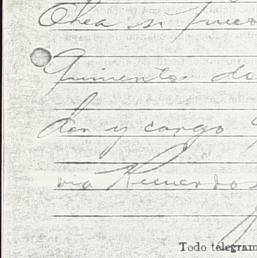 Ohea si pues
Quinientos do
dor y cargo
via Recuerdos
Todo telegram